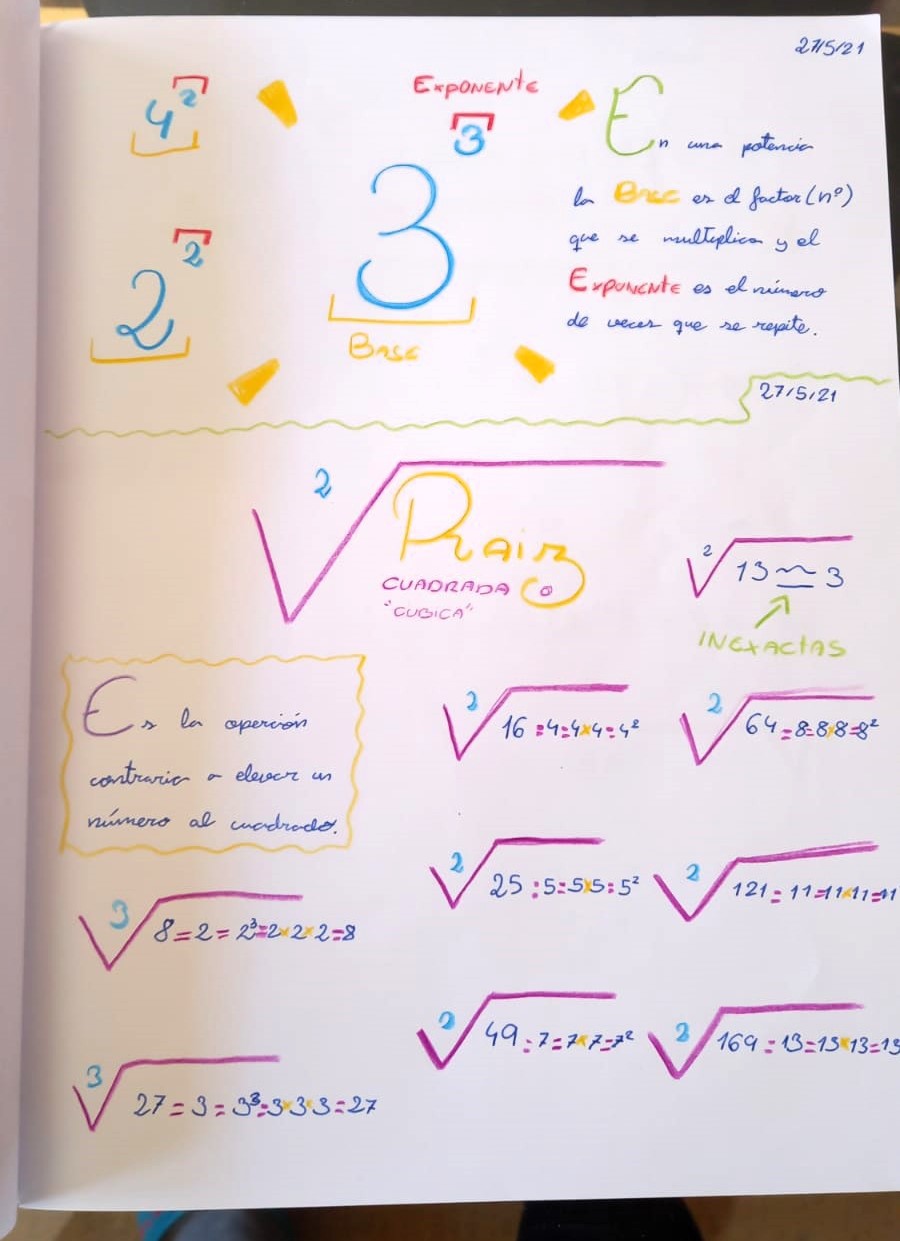 27/5/21
4²
Exponente
3³
Base
2²
En una potencia
la Base es el factor (nº)
que se multiplica y el
Exponente es el número
de veces que se repite.
27/5/21
²√ Raiz
CUADRADA o
"CUBICA"
²√13 ≃ 3
INEXACTAS
Es la operción
contraria a elevar un
número al cuadrado.
²√16 = 4 = 4x4 = 4²
²√64 = 8 = 8x8 = 8²
²√25 = 5 = 5x5 = 5²
²√121 = 11 = 11x11 = 11
³√8 = 2 = 2³ = 2x2x2 = 8
²√49 = 7 = 7x7 = 7²
²√169 = 13 = 13x13 = 13
³√27 = 3 = 3³ = 3x3x3 = 27